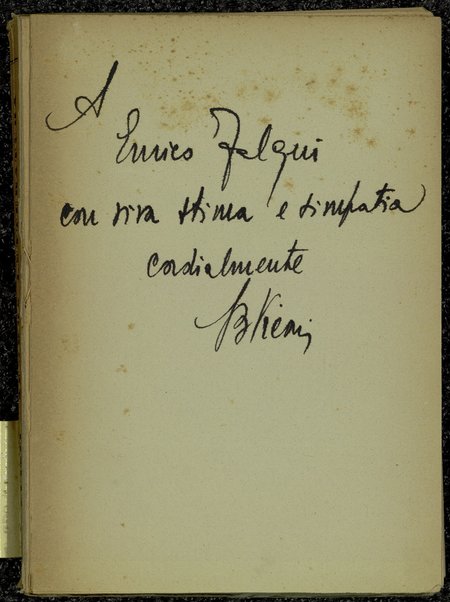 A
Enrico Falqui
con viva stima e simpatia
cordialmente